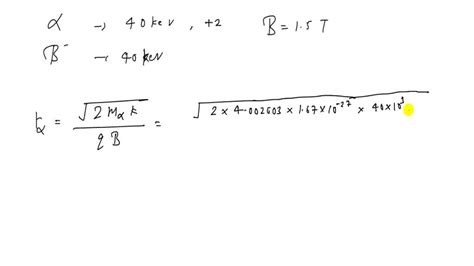 α → 40 keV , +2 B = 1.5 T
B⁻ → 40 keV
r_α = √(2 m_α k) / q B = √(2 × 4.002603 × 1.67 × 10⁻²⁷ × 40 × 10³